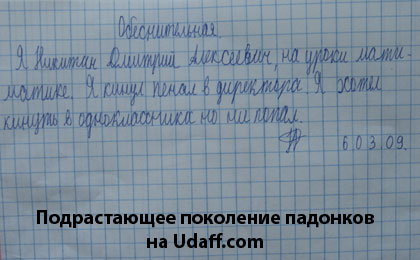 Обеснительная
Я Никитин Дмитрий Алексеевич, на уроки мати-
матике. Я кинул пенал в директора. Я хотел
кинуть в одноклассника но ни попал.
6.03.09.
Подрастающее поколение падонков
на Udaff.com